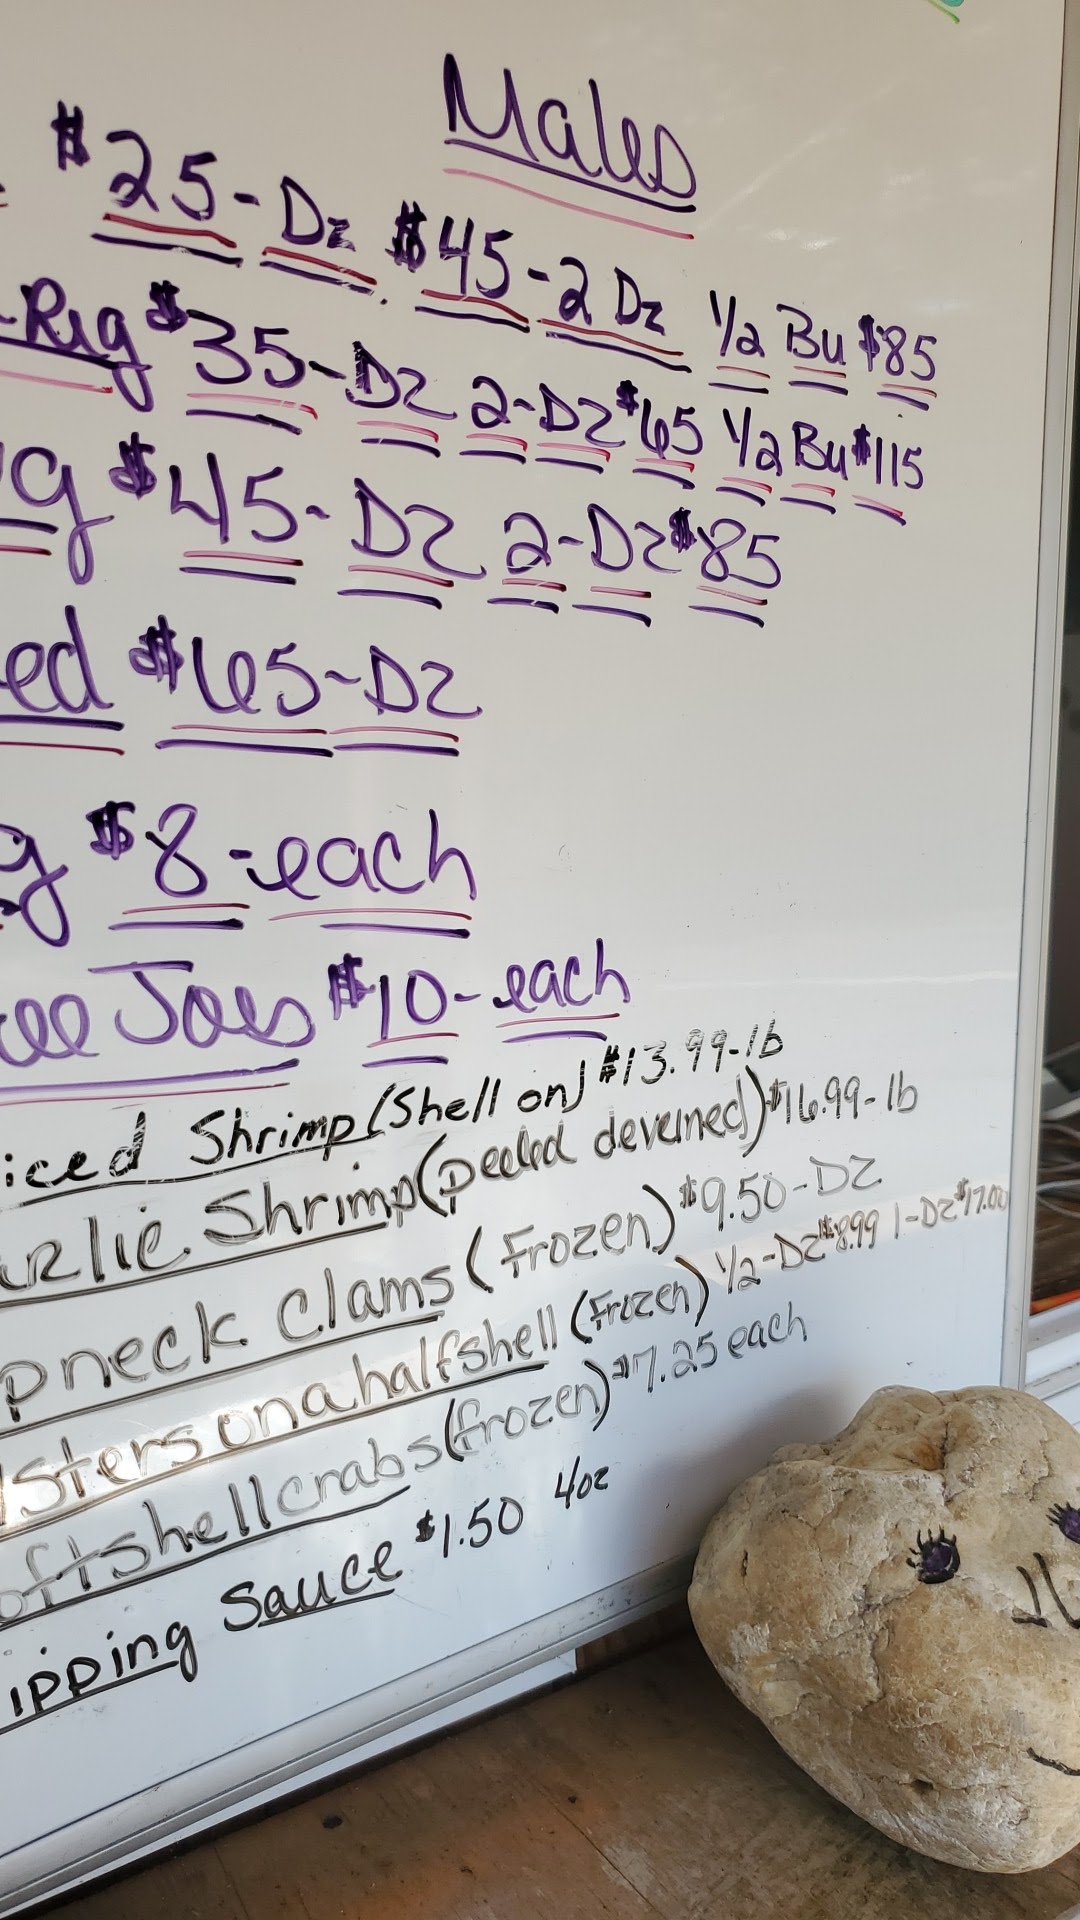 Males
$25-Dz $45-2 Dz 1/2 Bu $85
-Rig $35-Dz 2-Dz $65 1/2 Bu $115
g $45-Dz 2-Dz $85
ed $65-Dz
g $8-each
ee Joes $10-each
iced Shrimp (Shell on) $13.99-lb
arlic Shrimp (peeled deveined) $16.99-lb
pneck Clams (Frozen) $9.50-DZ
sters on a halfshell (Frozen) 1/2-DZ $8.99 1-DZ $17.00
oftshellcrabs (frozen) $7.25 each
ipping Sauce $1.50 4oz